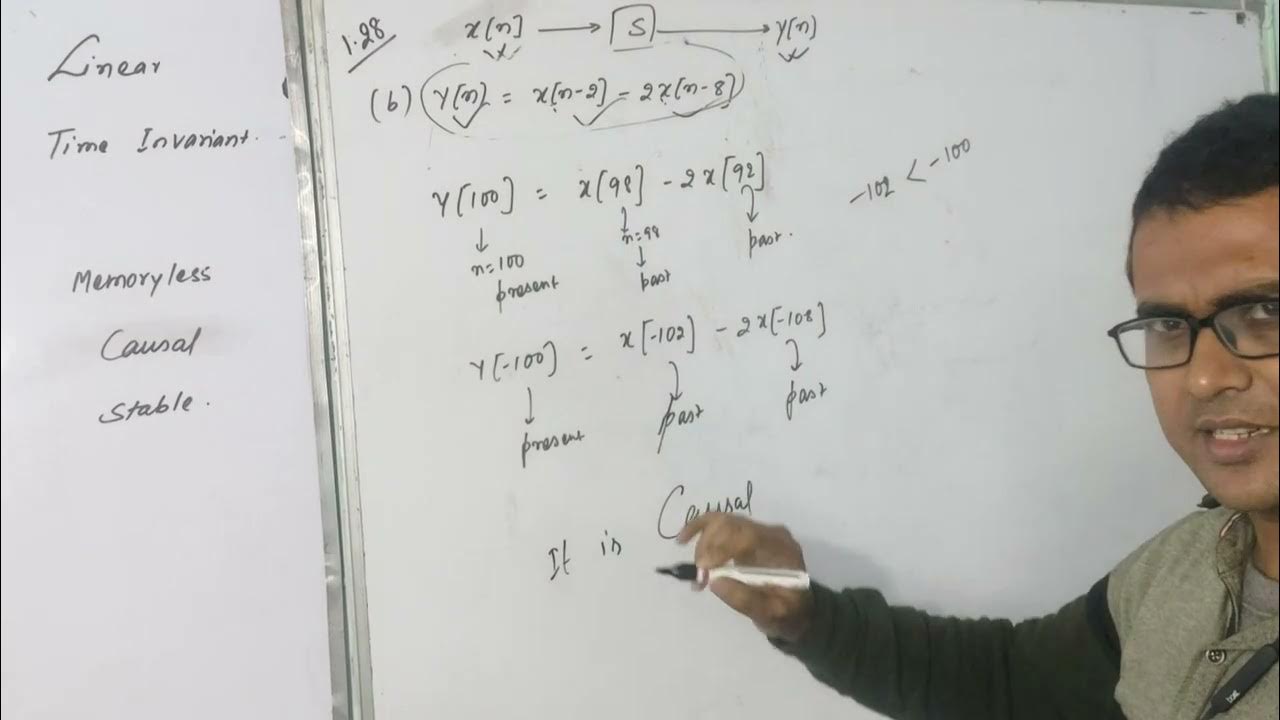 Linear
Time Invariant.
Memoryless
Causal
Stable.
1.28
x[n] → S → y(n)
(b) (y[n] = x[n-2] - 2x[n-8])
y[100] = x[98] - 2x[92]
↓ ↓ ↓
n=100 n=98 past.
present ↓
past
-102 < -100
y[-100] = x[-102] - 2x[-108]
↓ ↓ ↓
present past past
It is Causal
boat